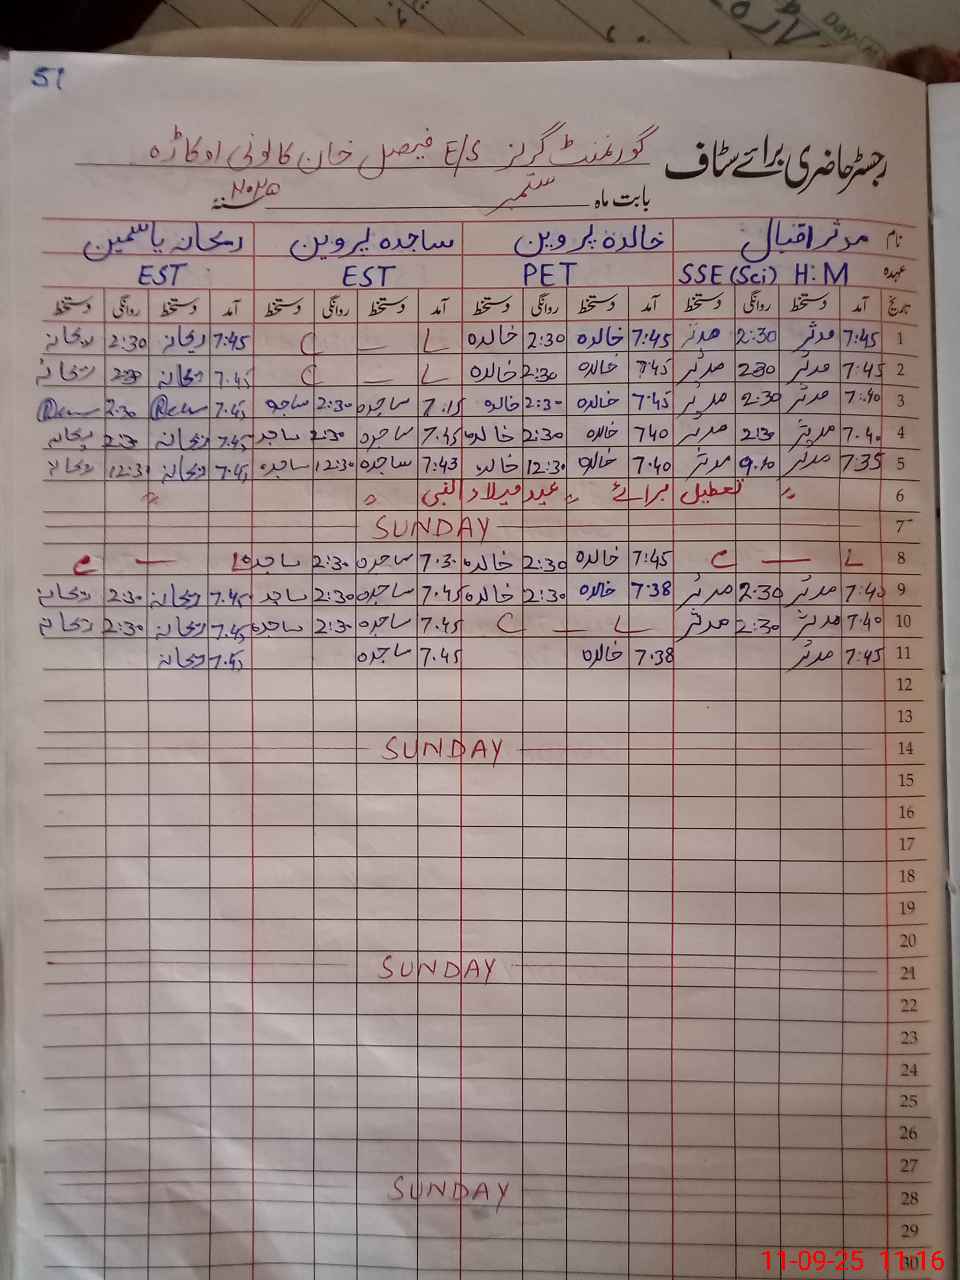 51
رجسٹر حاضری برائے سٹاف گورنمنٹ گرلز E/S فیصل خان کالونی اوکاڑہ
بابت ماہ ستمبر سنہ ۲۰۲۵
نام مدثر اقبال خالدہ پروین ساجدہ پروین ریحانہ یاسمین
عہدہ SSE (Sci) H:M PET EST EST
تاریخ آمد دستخط روانگی دستخط آمد دستخط روانگی دستخط آمد دستخط روانگی دستخط آمد دستخط روانگی دستخط
1 7:45 مدثر 2:30 مدثر 7:45 خالدہ 2:30 خالدہ L — C 7:45 ریحانہ 2:30 ریحانہ
2 7:45 مدثر 2:30 مدثر 7:45 خالدہ 2:30 خالدہ L — C 7.45 ریحانہ 2:30 ریحانہ
3 7:40 مدثر 2:30 مدثر 7:45 خالدہ 2:30 خالدہ 7:15 ساجدہ 2:30 ساجدہ 7.45 2:30
4 7.40 مدثر 2:30 مدثر 740 خالدہ 2:30 خالدہ 7.45 ساجدہ 2:30 ساجدہ 7.45 ریحانہ 2:30 ریحانہ
5 7:35 مدثر مدثر 7.40 خالدہ 12:30 خالدہ 7:43 ساجدہ 12:30 ساجدہ 7.45 ریحانہ 12:30 ریحانہ
6 " تعطیل برائے " عید میلاد النبی " "
7 SUNDAY
8 L — C 7:45 خالدہ 2:30 خالدہ 7.30 ساجدہ 2:30 ساجدہ L — C
9 7:40 مدثر 2:30 مدثر 7.38 خالدہ 2:30 خالدہ 7.45 ساجدہ 2:30 ساجدہ 7.45 ریحانہ 2:30 ریحانہ
10 7:40 مدثر 2:30 مدثر L — C 7.45 ساجدہ 2:30 ساجدہ 7.45 ریحانہ 2:30 ریحانہ
11 7:45 مدثر 7.38 خالدہ 7.45 ساجدہ 7.45 ریحانہ
12
13
14 SUNDAY
15
16
17
18
19
20
21 SUNDAY
22
23
24
25
26
27
28 SUNDAY
29
30
11-09-25 11:16